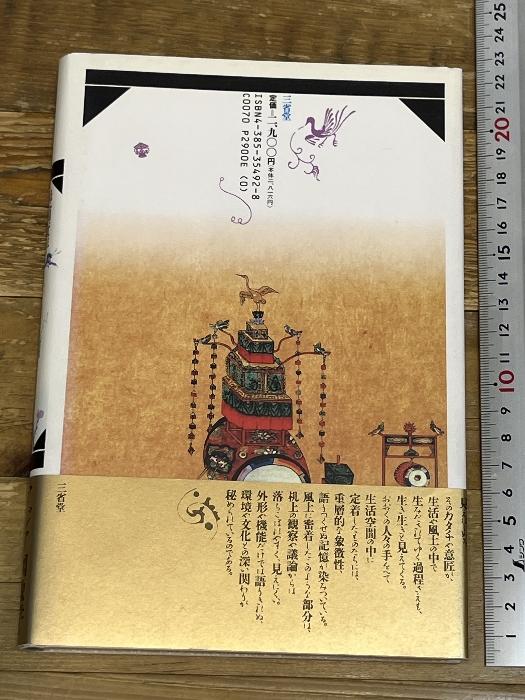 三省堂
定価=二、九〇〇円(本体二、八一六円)
ISBN4-385-35492-8
C0070 P2900E (0)
そのカタチや意匠が、
生活や風土の中で
生みだされてゆく過程さえも、
生き生きと見えてくる。
おおくの人々の手をへて
生活空間の中に
定着したものたちには、
重層的な象徴性
語りつくせぬ記憶が染みついている。
風土に密着したこのような部分は、
机上の観察や議論からは
落ちこぼれやすく、見えにくい。
外形や機能だけでは語りきれぬ、
環境や文化との深い関わりが
秘められているのである。
三省堂
25
24
23
22
21
20
19
18
17
16
15
14
13
12
11
10
9
8
7
6
5
4
3
2
1
シンワ